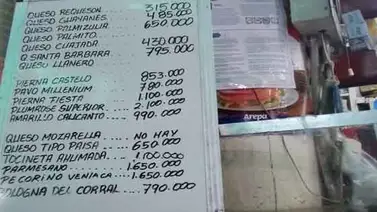 QUESO REQUESON... 315.000
QUESO GUAYANES... 485.000
QUESO PALMIZULIA... 650.000
QUESO PALMITO...
QUESO CUAJADA... 430.000
Q SANTA BARBARA... 795.000
QUESO LLANERO
PIERNA CASTELO... 853.000
PAVO MILLENIUM... 780.000
PIERNA FIESTA... 1.100.000
PLUMROSE SUPERIOR.. 2.100.000
AMARILLO CALICANTO.. 990.000
QUESO MOZARELLA... NO HAY
QUESO TIPO PAISA... 650.000
TOCINETA AHUMADA.. 1.100.000
PARMESANO... 1.650.000
PECORINO VENACA... 1.650.000
BOLOGNA DEL CORRAL.. 790.000
Arepa